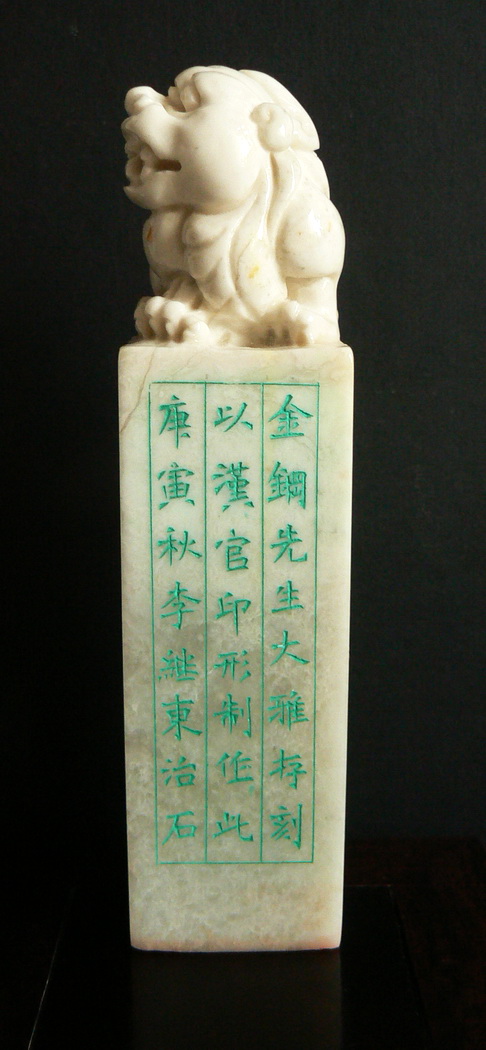 金鋼先生大雅存刻
以漢官印形制作此
庚寅秋李継東治石